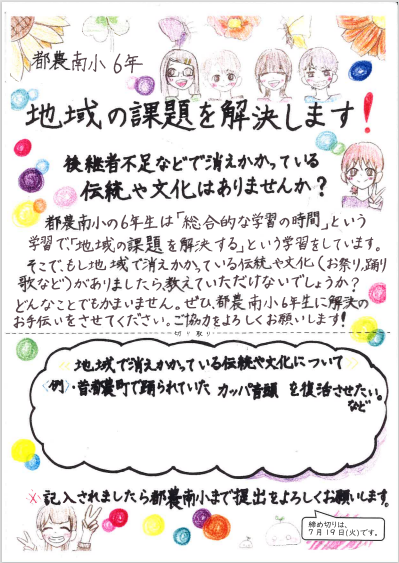 都農南小6年
地域の課題を解決します!
後継者不足などで消えかかっている
伝統や文化はありませんか?
都農南小の6年生は「総合的な学習の時間」という
学習で「地域の課題を解決する」という学習をしています。
そこで、もし地域で消えかかっている伝統や文化(お祭り,踊り
歌など)がありましたら、教えていただけないでしょうか?
どんなことでもかまいません。ぜひ、都農南小6年生に解決の
お手伝いをさせてください。ご協力をよろしくお願いします!
切り取り
地域で消えかかっている伝統や文化について
〈例〉・昔都農町で踊られていた カッパ音頭 を復活させたい。
など
※記入されましたら都農南小まで提出をよろしくお願いします。
締め切りは、
7月19日(火)です。